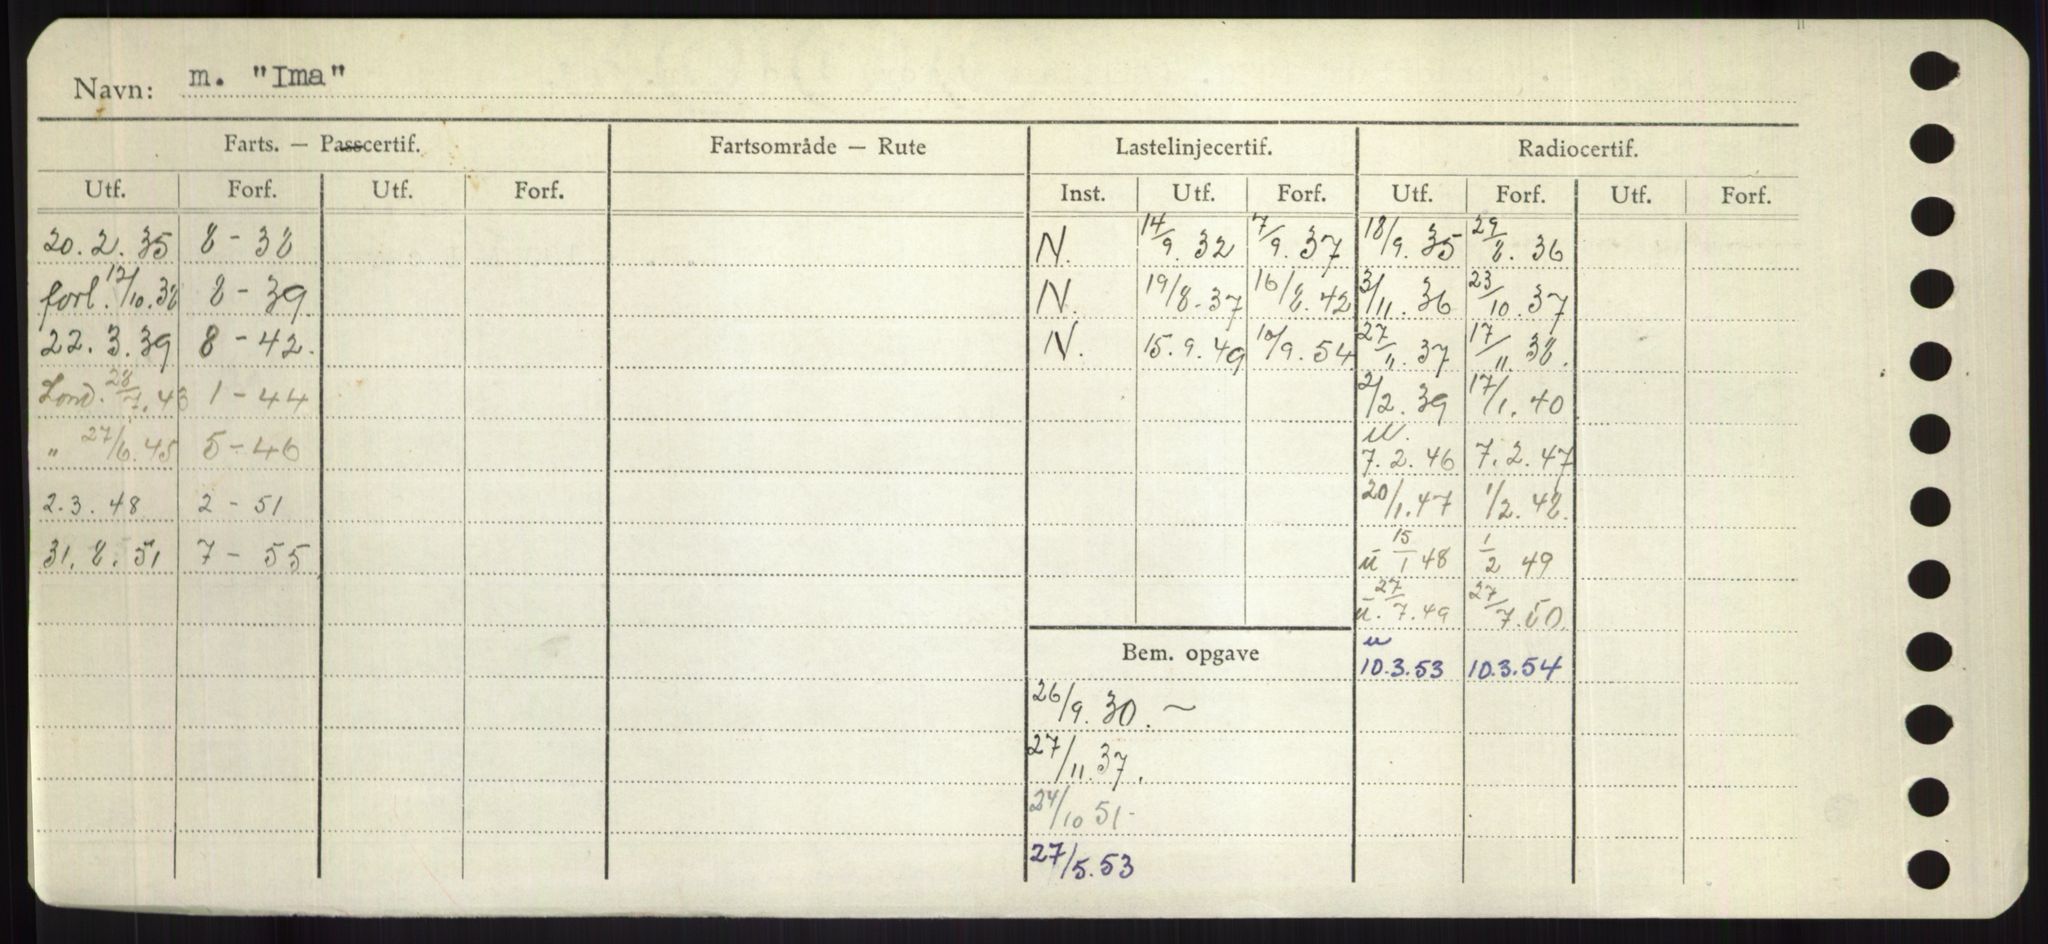 Navn: m. "Ima"
Farts. — Passcertif. Fartsområde — Rute Lastelinjecertif. Radiocertif.
Utf. Forf. Utf. Forf. Inst. Utf. Forf. Utf. Forf. Utf. Forf.
20.2.35 8-38 N. 14/9.32 7/9.37 18/9.35 29/8.36
forl. 12/10.38 8-39 N. 19/8-37 16/8.42 3/11.36 23/10.37
22.3.39 8-42. N. 15.9.49 10/9.54 27/".37 17/11.38.
Lond. 28/7.43 1-44 2/2.39 17/1.40
" 27/6.45 5-46 u. 7.2.46 7.2.47
2.3.48 2-51 20/1.47 1/2.48.
31.8.51 7-55 u 15/1 48 1/2 49
u. 27/7.49 27/7.50
Bem. opgave u 10.3.53 10.3.54
26/9.30. ~
27/11.37.
24/10 51-
27/5.53